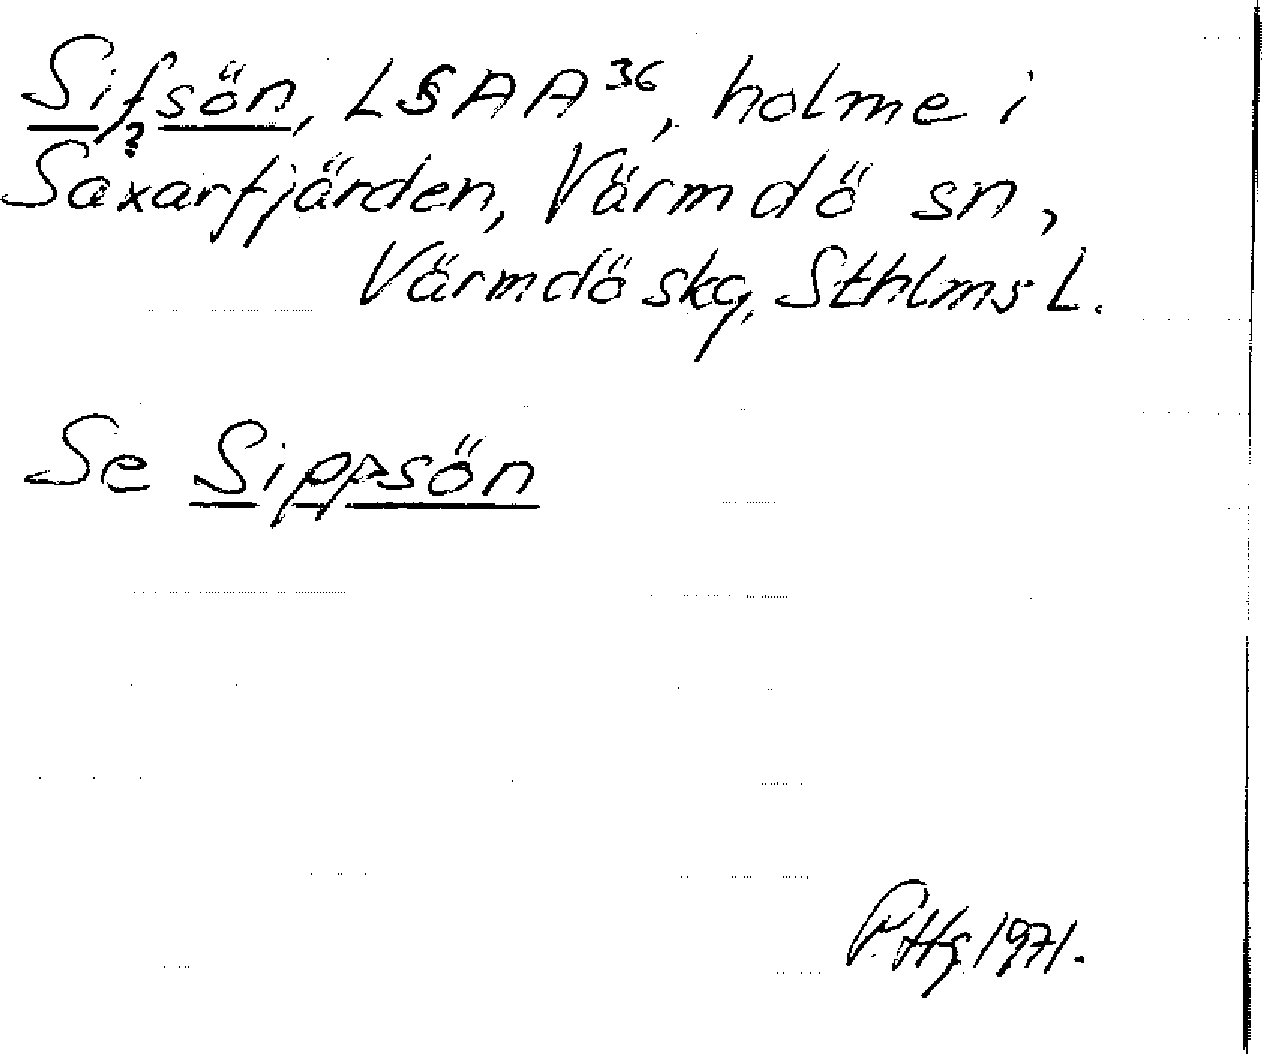 Sifsön, LSAA³⁶, holme i
?
Saxarfjärden, Värmdö sn,
Värmdö skg, Sthlms L.
Se Sippsön
P.Hg 1971.